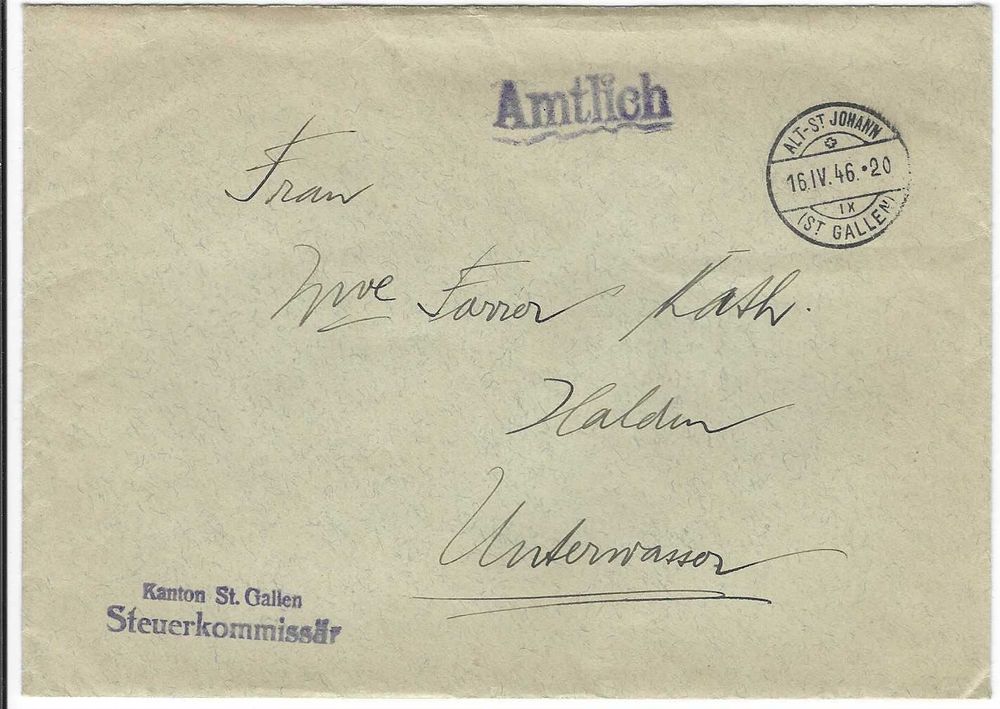 Amtlich
ALT-ST JOHANN
16.IV.46.•20
IX
(ST GALLEN)
Frau
Wwe Forrer Kath.
Halden
Unterwasser
Kanton St. Gallen
Steuerkommissär